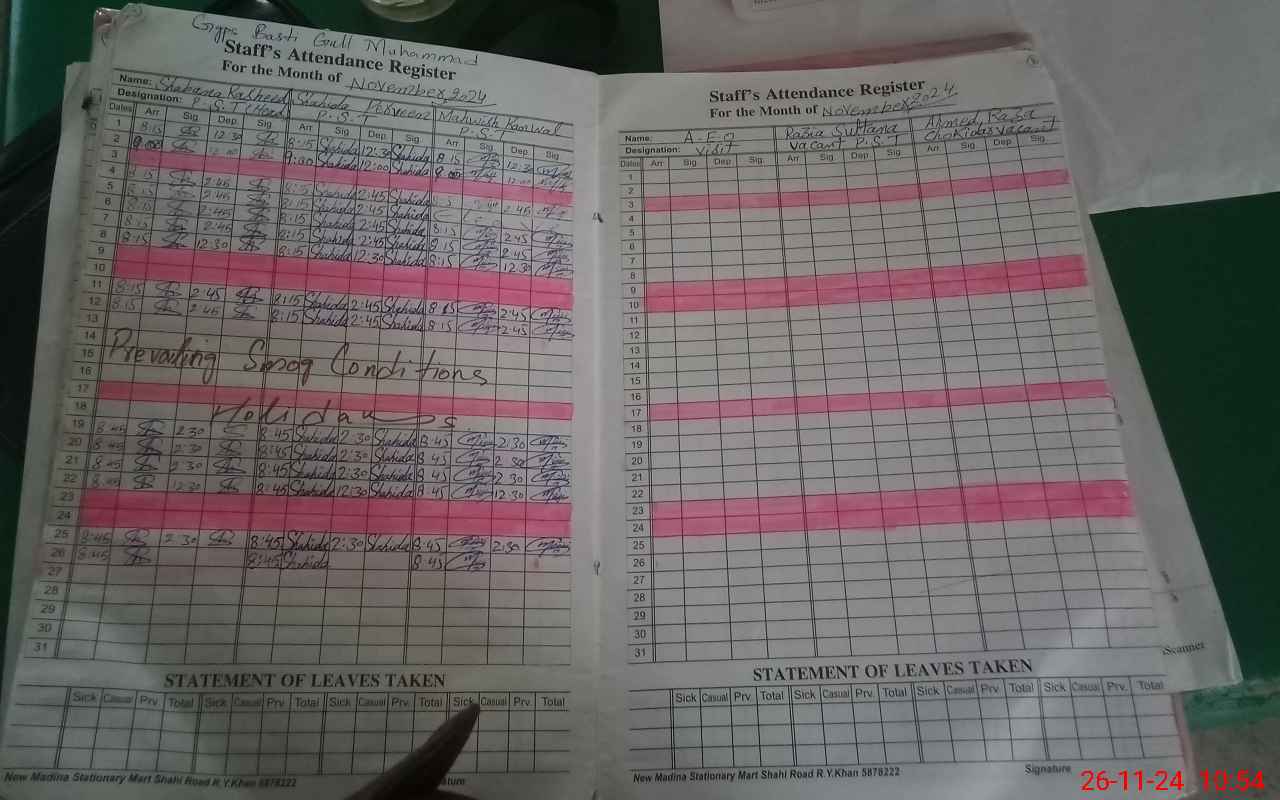 Ggps Basti Gull Muhammad
Staff's Attendance Register
For the Month of November, 2024
Name: Shabana Rasheed Shahida Perveen Mahwish Kanwal
Designation: P.S.T (Head) P.S.T P.S.
Dates Arr Sig. Dep. Sig. Arr Sig. Dep. Sig. Arr Sig. Dep. Sig.
1 8:15 12:30 8:15 Shahida 12:30 Shahida 8:15 12:30
2 8:00 12:00 Shahida 12:00 Shahida 8:00 12:00
3
4 8:15 2:45 8:15 Shahida 2:45 Shahida
5 8:15 2:45 8:15 Shahida 2:45 Shahida 2:45
6 8:15 2:45 8:15 Shahida 2:45 Shahida 8:15 2:45
7 8:15 2:45 8:15 Shahida 2:45 Shahida 8:15 2:45
8 8:15 12:30 8:15 Shahida 12:30 Shahida 8:15 12:30
9
10
11 8:15 2:45 8:15 Shahida 2:45 Shahida 8:15 2:45
12 8:15 2:45 8:15 Shahida 2:45 Shahida 8:15 2:45
13
14
15 Prevailing Smog Conditions
16
17
18 Holidays
19 8:45 2:30 8:45 Shahida 2:30 Shahida 8:45 2:30
20 8:45 2:30 8:45 Shahida 2:30 Shahida 8:45 2:30
21 8:45 2:30 8:45 Shahida 2:30 Shahida 8:45 2:30
22 8:45 12:30 8:45 Shahida 12:30 Shahida 8:45 12:30
23
24
25 8:45 2:30 8:45 Shahida 2:30 Shahida 8:45 2:30
26 8:45 8:45 Shahida 8:45
27
28
29
30
31
STATEMENT OF LEAVES TAKEN
Sick Casual Prv. Total Sick Casual Prv. Total Sick Casual Prv. Total Sick Casual Prv. Total
New Madina Stationary Mart Shahi Road R.Y.Khan 5878222
Staff's Attendance Register
For the Month of November 2024
Name: A.E.O Rabia Sultana Ahmed Raza
Designation: Visit Vacant P.S.T Chokidar Vacant
Dates Arr Sig. Dep Sig. Arr Sig. Dep Sig. Arr Sig. Dep. Sig.
1
2
3
4
5
6
7
8
9
10
11
12
13
14
15
16
17
18
19
20
21
22
23
24
25
26
27
28
29
30
31
iScanner
STATEMENT OF LEAVES TAKEN
Sick Casual Prv. Total Sick Casual Prv. Total Sick Casual Prv. Total Sick Casual Prv. Total
New Madina Stationary Mart Shahi Road R.Y.Khan 5878222 Signature
26-11-24 10:54